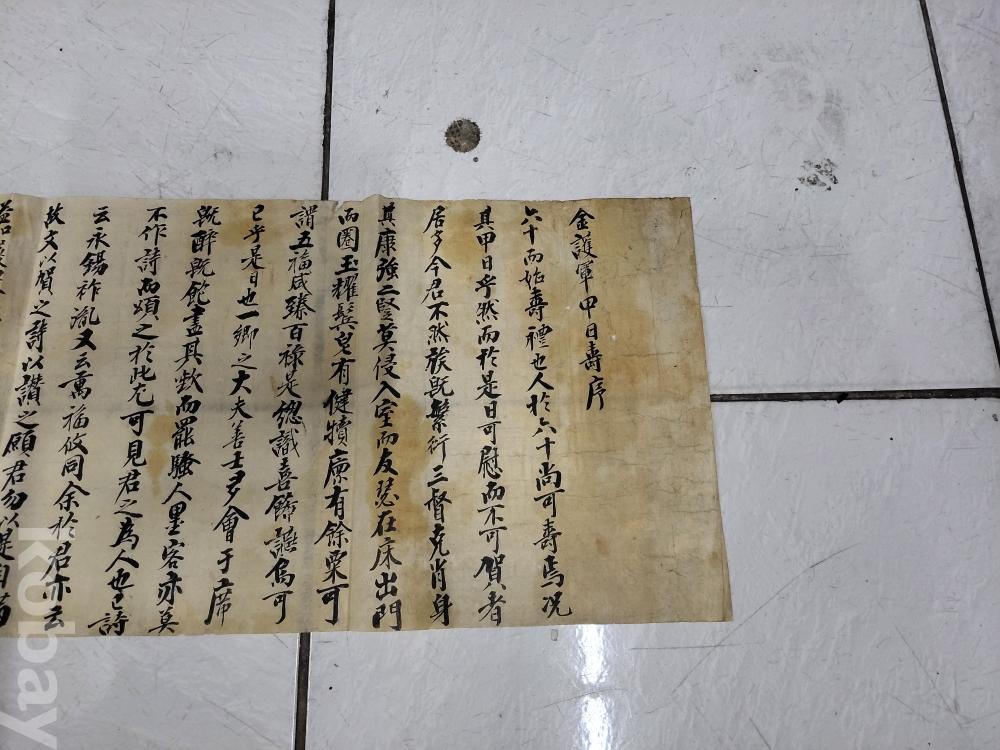 金護軍甲日壽序
六十而始壽禮也人於六十尚可壽焉况
其甲日乎然而於是日可慰而不可賀者
居多今君不然族旣繁衍三督克肖身
其康強二竪莫侵入室而友瑟在床出門
而圈玉耀鬂皃有健犢廪有餘粟可
謂五福咸臻百祿是總識喜餙譩烏可
已乎是日也一鄉之大夫善士多會于席
旣醉旣飽盡其歡而罷騷人墨客亦莫
不作詩而頌之於此尤可見君之爲人也已詩
云永錫祚胤又云萬福攸同余於君亦云
故文以賀之詩以讃之願君勿以是自
kobay